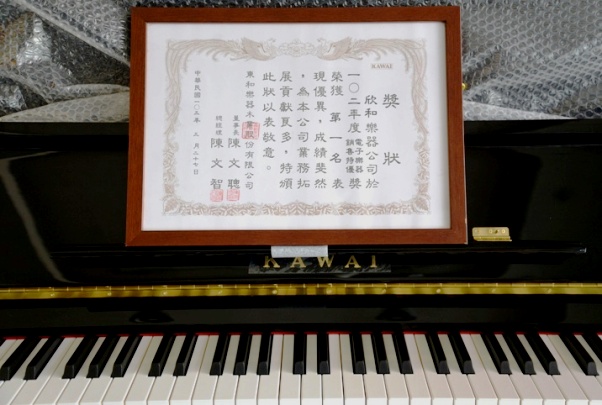 KAWAI
獎狀
欣和樂器公司於
一○二年度電子樂器銷售特優獎
榮獲第一名表
現優異,成績斐然
,為本公司業務拓
展貢獻良多,特頒
此狀以表敬意。
東和樂器木業股份有限公司
董事長 陳文聰
總經理 陳文智
中華民國一○三年三月二十七日
KAWAI